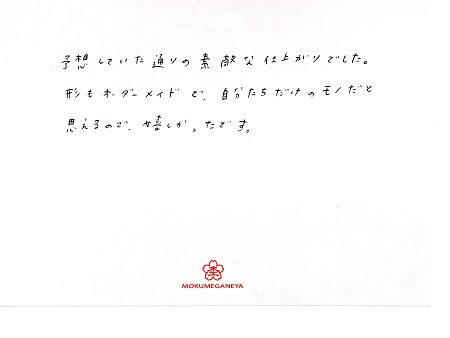 予想していた通りの素敵な仕上がりでした。
形もオーダーメイドで、自分たちだけのモノだと
思えるので、嬉しかったです。
MOKUMEGANEYA